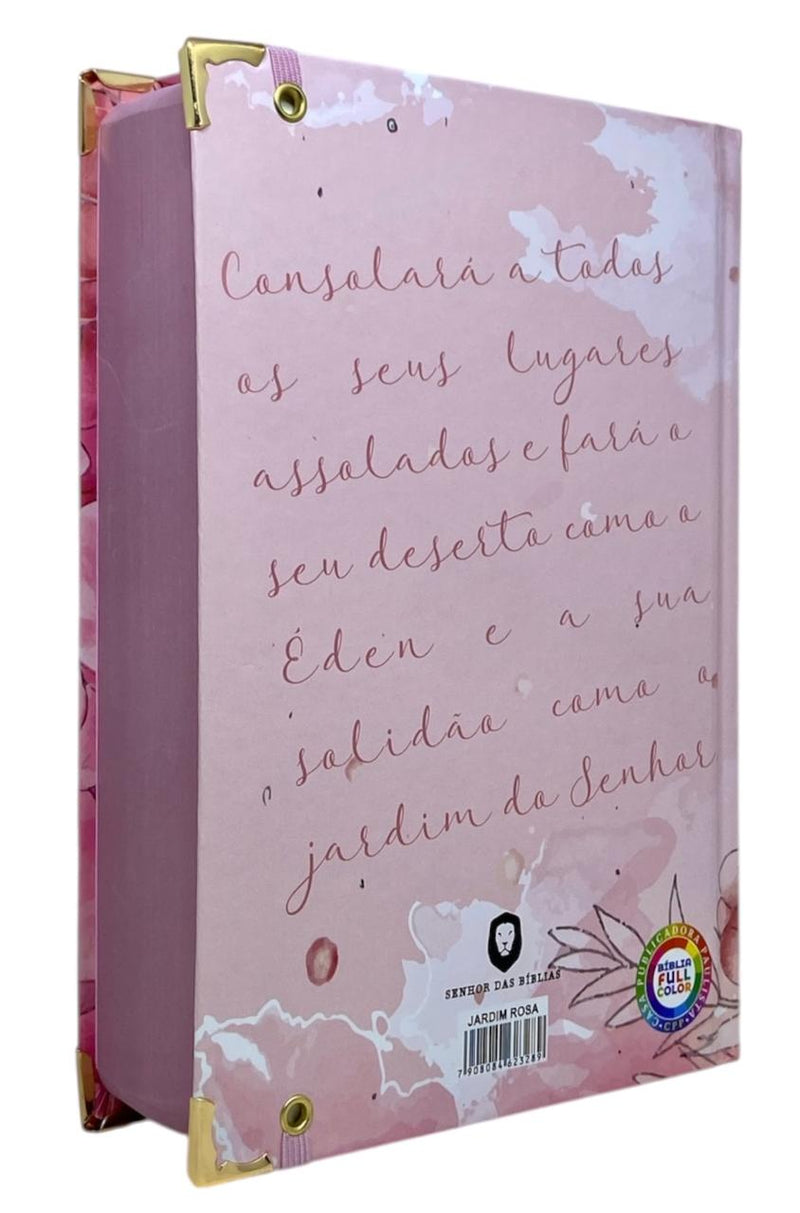 Consolará a todos
os seus lugares
assolados e fará o
seu deserto como o
Éden e a sua
solidão como o
jardim do Senhor
SENHOR DAS BÍBLIAS
JARDIM ROSA
7 908084 623289
CASA PUBLICADORA PAULISTA
•CPP•
BÍBLIA
FULL
COLOR